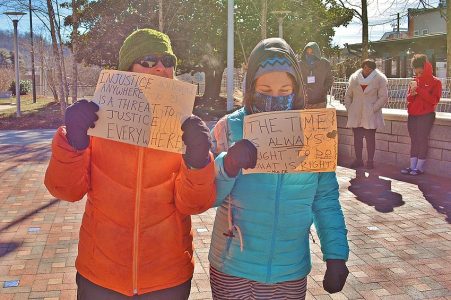 INJUSTICE
ANYWHERE
IS A THREAT TO
JUSTICE
EVERYWHERE
THE TIME
IS ALWAYS
RIGHT TO DO
WHAT IS RIGHT